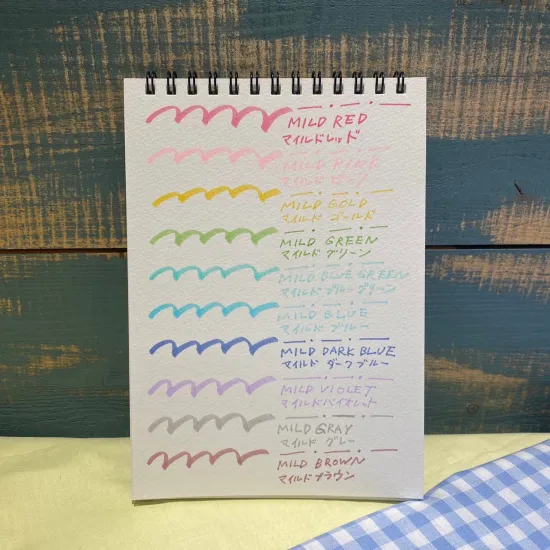 MILD RED
マイルドレッド
MILD PINK
マイルド ピンク
MILD GOLD
マイルド ゴールド
MILD GREEN
マイルド グリーン
MILD BLUE GREEN
マイルド ブルー グリーン
MILD BLUE
マイルド ブルー
MILD DARK BLUE
マイルド ダークブルー
MILD VIOLET
マイルドバイオレット
MILD GRAY
マイルド グレー
MILD BROWN
マイルドブラウン